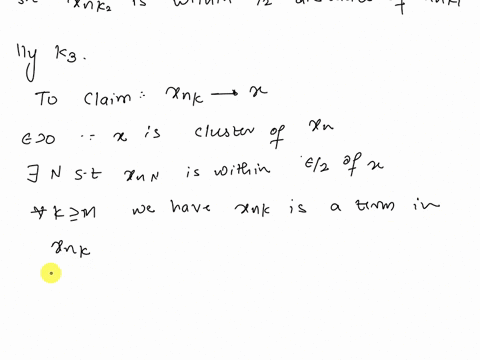 is within 1/2 distance of
lly k₃.
To claim: xₙₖ → x
ϵ>0 ∵ x is cluster of xₙ
∃ N s.t xₙN is within ϵ/2 of x
∀ k ≥ N we have xₙₖ is a term in
xₙₖ